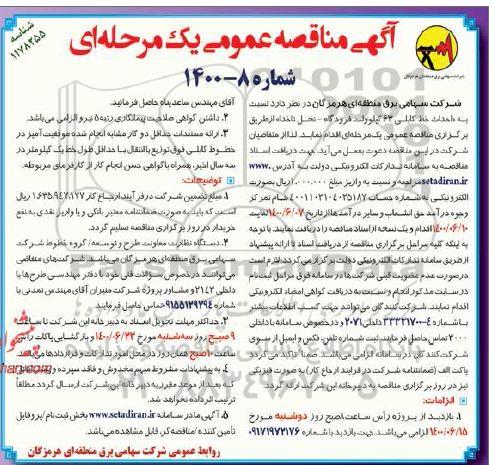 آگهی مناقصه عمومی یک مرحله‌ای
شماره ۸-۱۴۰۰
شناسه
۱۱۷۸۲۵۵
شرکت سهامی برق منطقه‌ای هرمزگان
شرکت سهامی برق منطقه‌ای هرمزگان در نظر دارد نسبت
به احداث خط کابلی ۶۳ کیلوولت فرودگاه - نخل ناخدا از طریق
برگزاری مناقصه عمومی یک مرحله‌ای اقدام نماید. لذا از متقاضیان
شرکت در این مناقصه دعوت بعمل می‌آید جهت دریافت اسناد
مناقصه به سامانه تدارکات الکترونیکی دولت به آدرس www.
setadiran.ir مراجعه و نسبت به واریز مبلغ ۱.۰۰۰.۰۰۰ ریال بصورت
وجوه درآمد حق انشعاب و سایر درآمدها از تاریخ ۱۴۰۰/۶/۰۷ لغایت
۱۴۰۰/۰۶/۱۰ اقدام و یک نسخه از اسناد مناقصه را دریافت نمایند. با توجه
به اینکه کلیه مراحل برگزاری مناقصه از دریافت اسناد تا ارائه پیشنهاد
از طریق سامانه تدارکات الکترونیکی دولت برگزار می‌گردد، لازم است
در صورت عدم عضویت قبلی شرکت‌ها در سامانه فوق مراحل ثبت نام
در سایت مذکور انجام و نسبت به دریافت گواهی امضاء الکترونیکی
اقدام نمایند. شرکت کنندگان می‌توانند جهت کسب اطلاعات بیشتر
با شماره ۴-۳۳۳۳۱۷۰۰ داخلی ۲۰۷۱ و در خصوص سامانه با داخلی
۲۰۰۰ تماس حاصل فرمایند. ثبت شماره تماس، تلفن، فکس و ایمیل از سوی
شرکت کنندگان در سامانه الزامی می‌باشد. ضمناً تأکید می‌گردد
پاکت الف (ضمانتنامه شرکت در فرایند ارجاع کار) به صورت فیزیکی
نیز در روز برگزاری مناقصه به دبیرخانه این شرکت ارائه گردد.
الزامات:
۱. بازدید از پروژه رأس ساعت ۸ صبح روز دوشنبه مورخ
۱۴۰۰/۰۶/۱۵ الزامی می‌باشد. جهت بازدید با شماره ۰۹۱۷۱۹۷۳۱۷۶
آقای مهندس ساعدپناه حاصل فرمایند.
۲. داشتن گواهی صلاحیت پیمانکاری رتبه ۵ نیرو الزامی می‌باشد.
۳. ارائه مستندات حداقل دو کار مشابه انجام شده موفقیت آمیز در
خطوط کابلی فوق توزیع یا انتقال با حداقل طول خط یک کیلومتر در
سه سال اخیر، همراه با گواهی حسن انجام کار از کارفرمای مربوطه.
توضیحات:
۱. مبلغ تضمین شرکت در فرآیند ارجاع کار ۱.۶۳۵.۹۴۷.۱۷۷ ریال
است که باید به صورت ضمانتنامه معتبر بانکی و یا واریز نقدی به نفع
خریدار در روز برگزاری مناقصه تسلیم گردد.
۲. دستگاه نظارت معاونت طرح و توسعه/ گروه خطوط شرکت
سهامی برق منطقه‌ای هرمزگان می‌باشد. شرکت‌های متقاضی
می‌توانند در خصوص سؤالات فنی خود با دفتر مهندسی طرح‌ها با
داخلی ۲۱۴۲ و مشاور پروژه شرکت منیران آقای مهندس تمدنی با
شماره ۰۹۱۵۵۱۴۹۲۹۴ تماس حاصل فرمایند.
۳. حداکثر مهلت تحویل اسناد به دبیرخانه این شرکت تا ساعت
۹ صبح روز سه‌شنبه مورخ ۱۴۰۰/۰۶/۲۳ و بازگشایی پاکات رأس
ساعت ۱۰ صبح همان روز در محل امور تدارکات و قراردادها می‌باشد.
۴. به پیشنهادات مشروط مبهم مخدوش و فاقد سپرده و پیشنهاداتی
که بعد از موعد مقرر به دبیرخانه این شرکت ارسال گردد مطلقاً
ترتیب اثر داده نخواهد شد.
۵. آگهی ما در سامانه www.setadiran.ir بخش ثبت نام / پروفایل
تأمین کننده / مناقصه گر، قابل مشاهده می‌باشد.
روابط عمومی شرکت سهامی برق منطقه‌ای هرمزگان